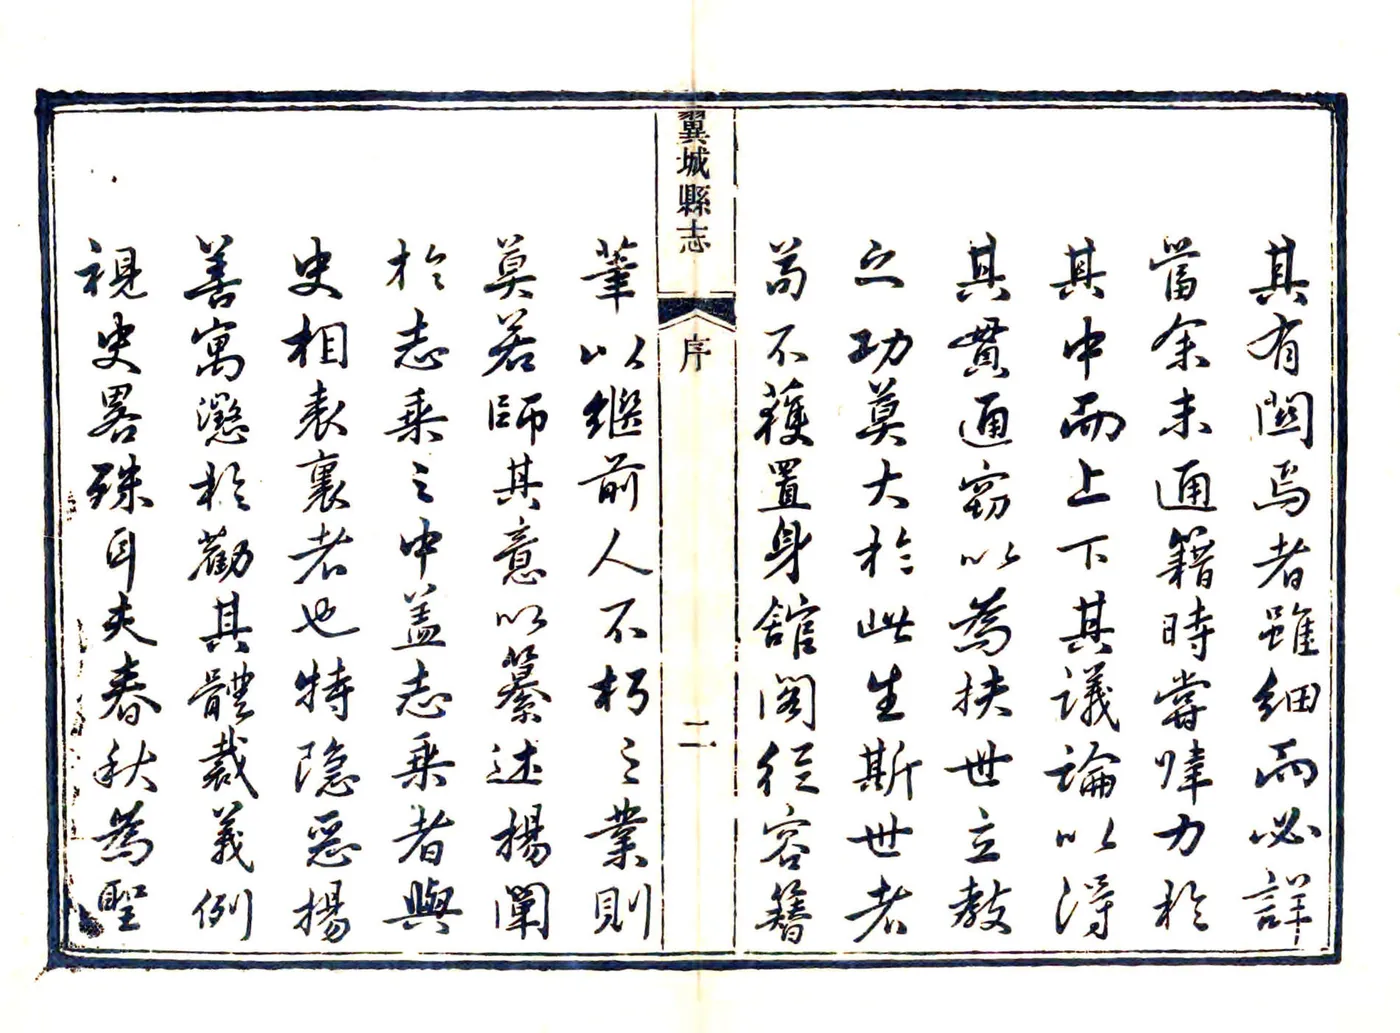 其有関焉者雖細而必詳
當余未通籍時嘗嘩力於
其中而上下其議論以得
其貫通竊以為扶世立教
之功莫大於此生斯世者
茍不獲置身館閣從容簪
翼城縣志
序
二
筆以繼前人不朽之業則
莫若師其意以纂述揚闡
於志乘之中盖志乘者與
史相表裏者也特隱惡揚
善寓懲於勸其體裁義例
視史畧殊耳夫春秋為聖